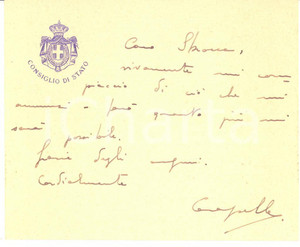 CONSIGLIO DI STATO
Caro
vivamente mi com
piaccio di ciò che mi
annunci e farò quanto più mi
sarà possibile.
Grazie degli auguri.
Cordialmente